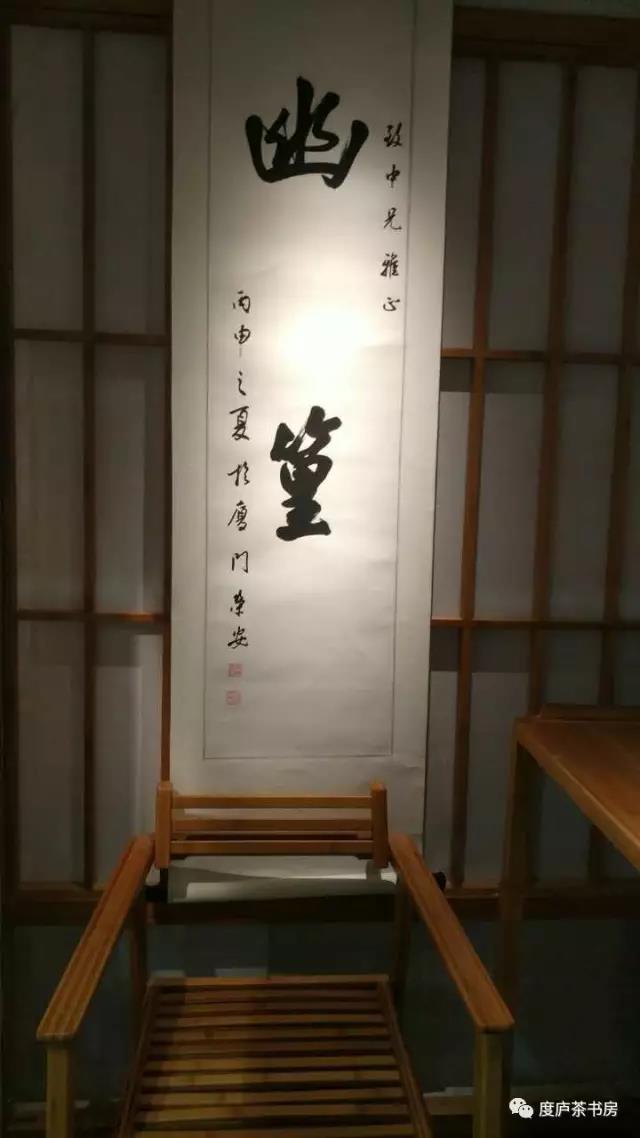 致中兄雅正
幽篁
丙申之夏于厦门荣安
度庐茶书房